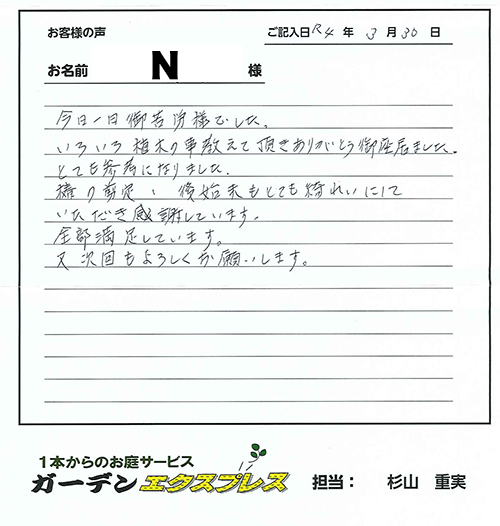 お客様の声
ご記入日 R4 年 3 月 30 日
お名前 N 様
今日一日御苦労様でした。
いろいろ植木の事教えて頂きありがとう御座居ました。
とても参考になりました。
の剪定、後始末もとても綺れいにして
いただき感謝しています。
全部満足しています。
又次回もよろしくお願いします。
1本からのお庭サービス
ガーデンエクスプレス 担当： 杉山 重実